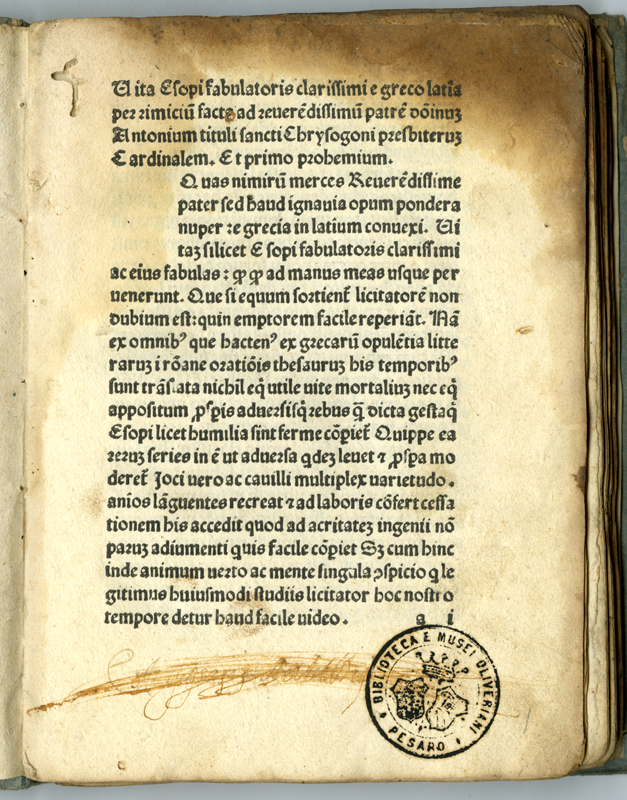 Uita Esopi fabulatoris clarissimi e greco latīa
per rimiciū facta ad reuerēdissimū patrē dōinuꝫ
Antonium tituli sancti Chrysogoni presbiteruꝫ
Cardinalem. Et primo prohemium.
Quas nimirū merces Reuerēdissime
pater sed haud ignauia opum pondera
nuper :e grecia in latium conuexi. Ui
taꝫ silicet Esopi fabulatoris clarissimi
ac eius fabulas: ꝙ ꝙ ad manus meas usque per
uenerunt. Que si equum sortient̄ licitatorē non
dubium est: quin emptorem facile reperiāt. Nā
ex omnibꝰ que hactenꝰ ex grecarū opulētia litte
raruꝫ i rōane oratiōis thesauruꝫ his temporibꝰ
sunt trāslata nichil eq̄ utile uite mortaliuꝫ nec eq̄
appositum ꝓspis aduersisq̄ rebus q̄ dicta gestaq̄
Esopi licet humilia sint ferme cōpiet̄ Quippe ea
reruꝫ series in ē ut aduersa qdeꝫ leuet ⁊ ꝓspa mo
deret̄ Joci uero ac cauilli multiplex uarietudo.
anīos lāguentes recreat ⁊ ad laboris cōfert cessa
tionem his accedit quod ad acritateꝫ ingenii nō
paruꝫ adiumenti quis facile cōpiet Sꝫ cum hinc
inde animum uerto ac mente singula ꝯspicio q le
gitimus huiusmodi studiis licitator hoc nostro
tempore detur haud facile uideo.
a i
BIBLIOTECA E MUSEI OLIVERIANI
PESARO